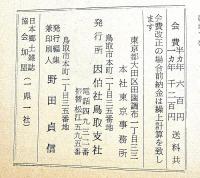 会費 半カ年 六百円 送料共
一カ年 千二百円
会費改正の場合前納金は繰上計算を致し
ます
東京都大田区田園調布一丁目二三
本社東京事務所
鳥取市本町一丁目三五番地
発行所 因伯社鳥取支社
電話四九三二番
振替松江五九五
鳥取市本町一丁目三五番地
発行編集
兼印刷人 野田貞信
日本郷土雑誌
協会加盟(一県一社)